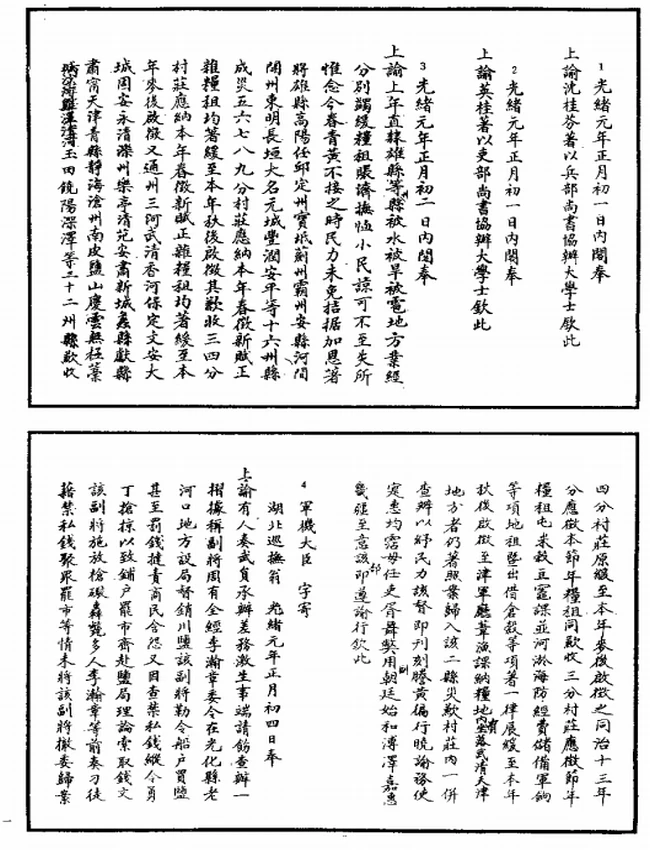 1 光緒元年正月初一日內閣奉
上諭沈桂芬著以兵部尚書協辦大學士欽此
2 光緒元年正月初一日內閣奉
上諭英桂著以吏部尚書協辦大學士欽此
3 光緒元年正月初二日內閣奉
上諭上年直隸雄縣等縣被水被旱被雹地方業經
分別蠲緩糧租賑濟撫恤小民諒可不至失所
惟念今春青黃不接之時民力未免拮据加恩著
將雄縣高陽任邱定州寶坻薊州霸州安縣河間
開州東明長垣大名元城豐潤安平等十六州縣
成災五六七八九分村莊應納本年春徵新賦正
雜糧租均著緩至本年秋後啟徵其歉收三四分
村莊應納本年春徵新賦正雜糧租均著緩至本
年麥後啟徵又通州三河武清香河保定文安大
城固安永清灤州樂亭清苑安肅新城蠡縣獻縣
肅甯天津青縣靜海滄州南皮鹽山慶雲無極藁
玉田饒陽深澤等三十二州縣歉收
四分村莊原緩至本年麥後啟徵之同治十三年
分應徵本節年糧租同歉收三分村莊應徵節年
糧租屯米穀豆竈課並河淤海防經費儲備軍餉
等項地租暨出借倉穀等項著一律展緩至本年
秋後啟徵至津軍廳葦漁課納糧地內有坐落武清天津
地方者仍著照案歸入該二縣災歉村莊內一併
查辦以紓民力該督即刊刻謄黃徧行曉諭務使
定惠均霑毋任吏胥舞弊用副朝廷始和溥澤嘉惠
畿疆至意該部即遵諭行欽此
4 軍機大臣 字寄
湖北巡撫翁 光緒元年正月初四日奉
上諭有人奏武員承辦差務激生事端請飭查辦一
摺據稱副將周有全經李瀚章委令在光化縣老
河口地方設局督銷川鹽該副將勒令船戶買鹽
甚至罰錢撻責商民含怨又因查禁私錢縱令勇
丁搶掠以致鋪戶罷市齊赴鹽局理論索取錢文
該副將施放槍礮轟斃多人李瀚章等前奏刁徒
藉禁私錢聚眾罷市等情未將該副將撤委歸案